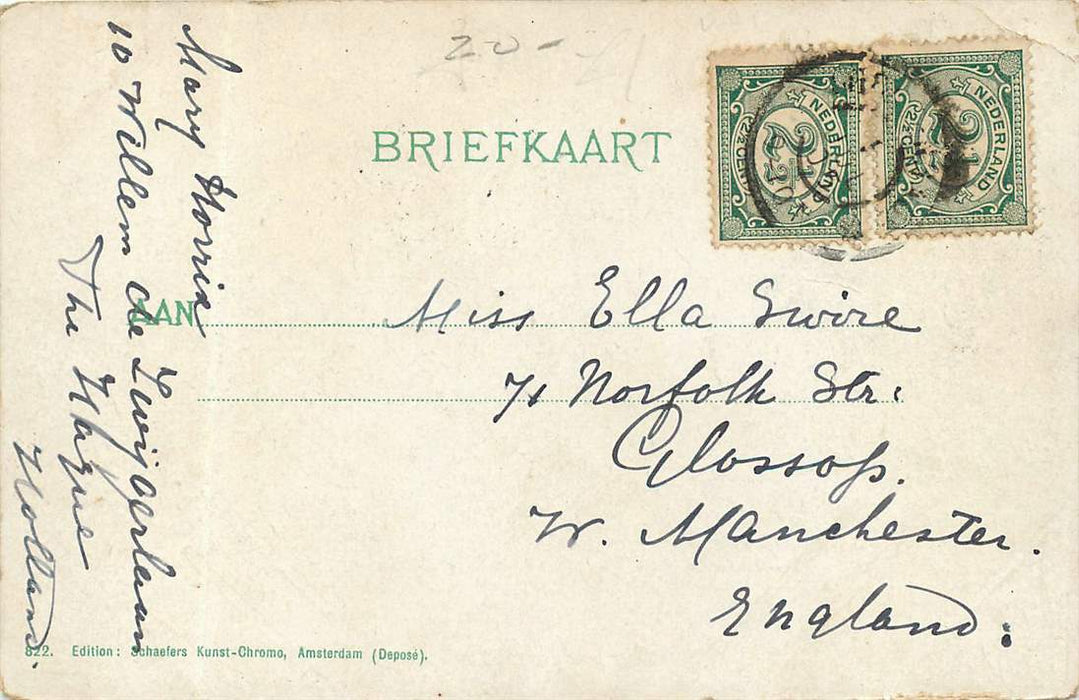 20-
BRIEFKAART
NEDERLAND
2½
2½ CENT
NEDERLAND
2½
2½ CENT
AAN
Miss Ella Swire
71 Norfolk Str:
Glossop.
W. Manchester.
England.
Mary Horris
10 Willem de Zwijgerlaan
The Hague
Holland.
822. Edition: Schaefers Kunst-Chromo, Amsterdam (Deposé).